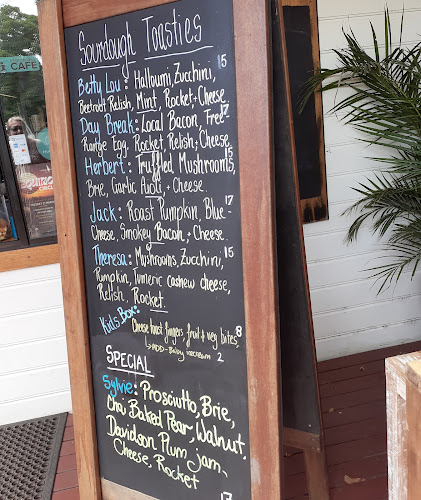 CAFE
Sourdough Toasties
Betty Lou: Halloumi, Zucchini, 15
Beetroot Relish, Mint, Rocket + Cheese
Day Break: Local Bacon, Free- 17
Range Egg, Rocket, Relish + Cheese
Herbert: Truffled Mushrooms, 15
Brie, Garlic Aioli, + Cheese
Jack: Roast Pumpkin, Blue- 17
Cheese, Smokey Bacon, + Cheese
Theresa: Mushrooms, Zucchini, 15
Pumpkin, Tumeric cashew cheese,
Relish, Rocket.
Kids Box:
Cheese toast fingers, fruit + veg bites, 8
ADD - Baby icecream 2
SPECIAL
Sylvie: Prosciutto, Brie,
Chai Baked Pear, Walnut,
Davidson Plum jam,
Cheese, Rocket
17